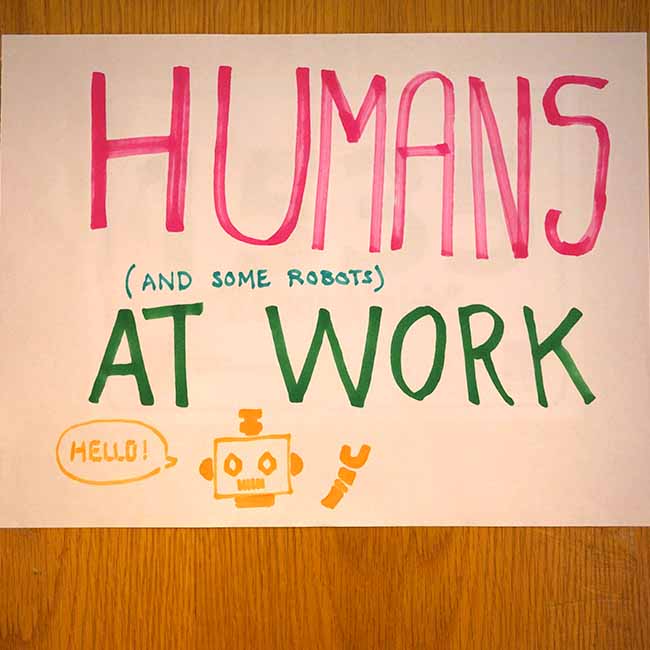 HUMANS
(AND SOME ROBOTS)
AT WORK
HELLO!